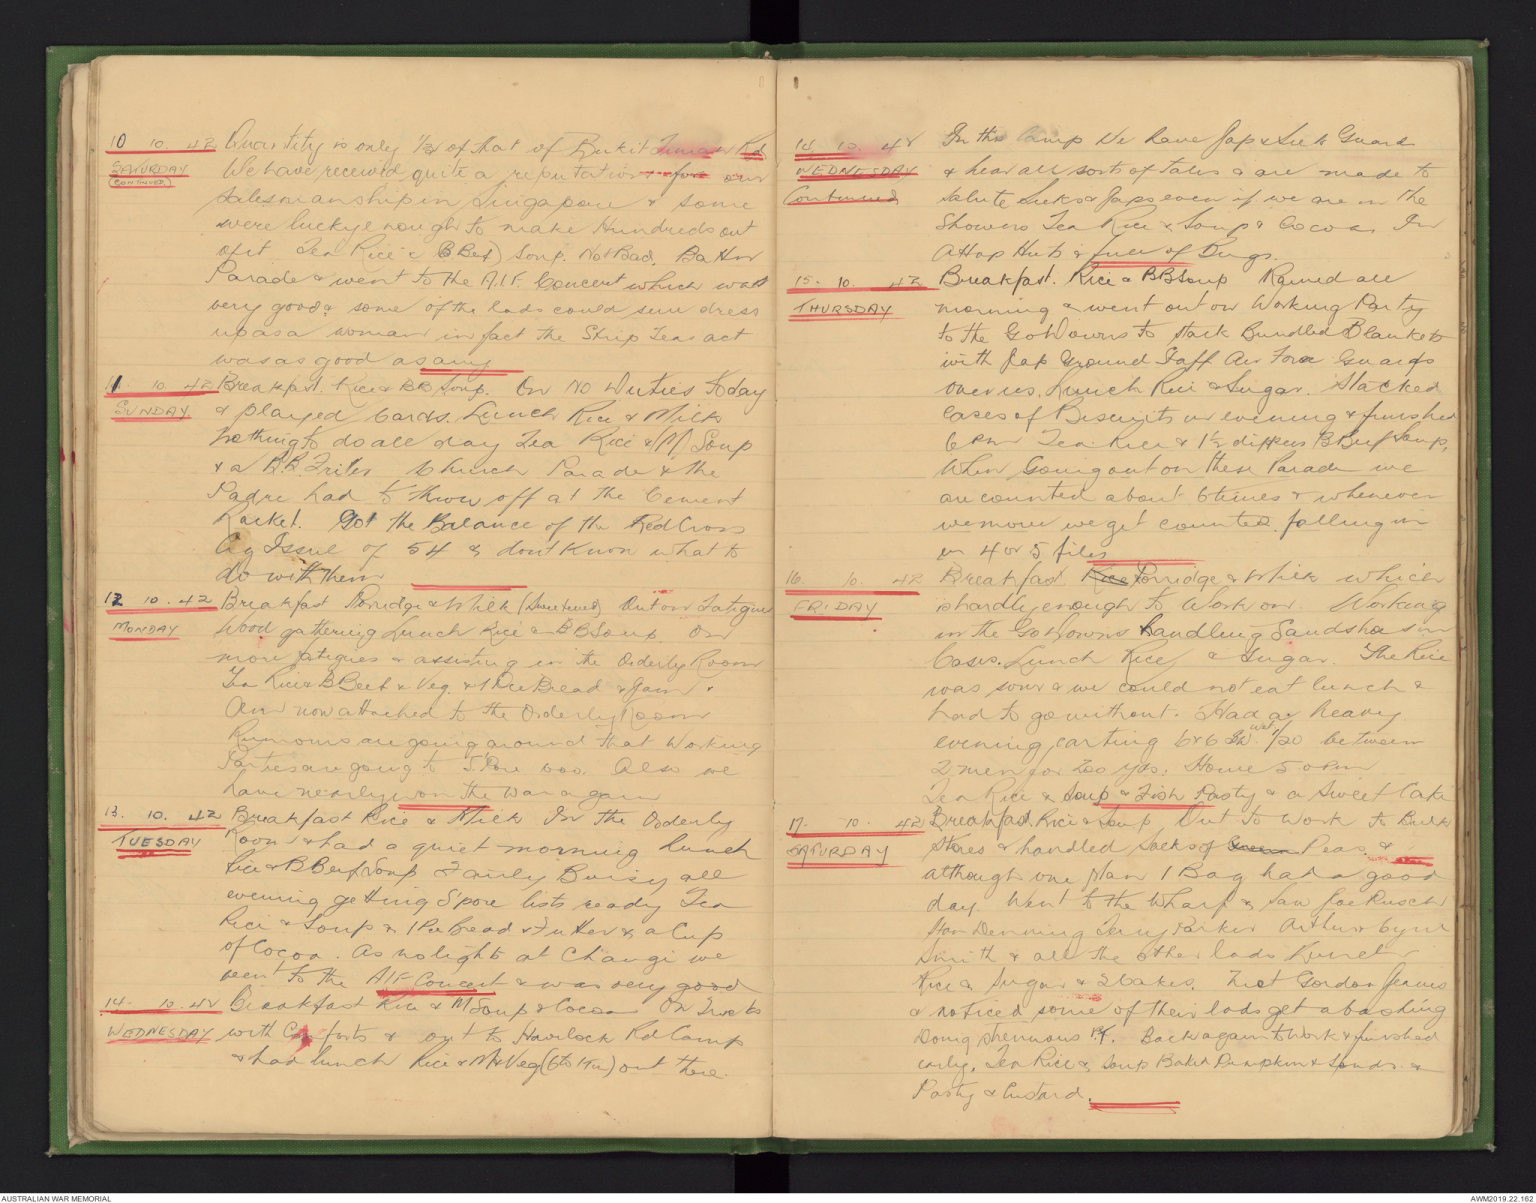 10 10. 42 Quantity is only 1/3 of that of Bukit Timah Rd
SATURDAY We have received quite a reputation for our
(CONTINUED) salesmanship in Singapore & some
were lucky enough to make Hundreds out
of it Tea Rice & (B Beef) Soup. Not Bad. Bath
Parade & went to the A.I.F. Concert which was
very good & some of the lads could sure dress
up as a woman in fact the Strip Teas act
was as good as any
11. 10. 42 Breakfast. Rice & BB Soup. On NO Duties Today
SUNDAY & played Cards. Lunch Rice & Milk
Nothing to do all day Tea Rice & M. Soup
& a B.B. Church Parade & the
Padre had to throw off at the Cement
Racket. Got the Balance of the Red Cross
Cig Issue of 54 & dont know what to
do with them
12 10. 42 Breakfast Porridge & Milk (Sweetened) Out on Fatigue
MONDAY Wood gathering Lunch Rice & BB Soup. On
more fatigues & assisting in the Orderly Room
Tea Rice & B Beef & Veg. & 1 Pce Bread & Jam.
Am now attached to the Orderly Room
Rumours are going around that Working
Parties are going to S'Pore Also we
have nearly won the War again
13. 10. 42 Breakfast Rice & Milk In the Orderly
TUESDAY Room & had a quiet morning lunch
Rice & B Beef Soup Fairly Buisy all
evening getting S'pore lists ready Tea
Rice & Soup & 1 Pce Bread & & a Cup
of Cocoa. As no lights at Changi we
went to the AIF Concert & was very good
14. 10. 42 Breakfast Rice & M Soup & Cocoa On Trucks
WEDNESDAY with Comforts & out to Havelock Rd Camp
& had lunch Rice & M & Veg (6 to 1 Tin) out there.
14. 10. 42 In this Camp we have Jap & Seek Guard
WEDNESDAY & hear all sorts of tales & are made to
Continued salute Seeks & Japs even if we are in the
Showers Tea Rice & Soup & Cocoa. In
Attap Huts & full of Bugs.
15. 10. 42 Breakfast. Rice & BB Soup Rained all
THURSDAY morning & went out on Working Party
to the GoDowns to stack Bundled Blankets
with Jap Ground Staff Air Force Guards
over us. Lunch Rice & Sugar. Stacked
Cases of Biscuits in evening & finished
6 PM Tea Rice & 1½ dippers B Beef Soup.
When Going out on these Parade we
are counted about 6 times & whenever
we move we get counted. falling in
in 4 or 5 files
16 10. 42 Breakfast Rice Porridge & Milk which
FRIDAY is hardly enough to Work on. Working
in the GoDowns handling Sandshoes in
Cases. Lunch Rice & Sugar. The Rice
was sour & we could not eat lunch &
had to go without. Had a heavy
evening carting 6 x 6 between
2 men for 200 yds. Home 5 o PM
Tea Rice & Soup & Fish Pasty & a Sweet Cake
17. 10. 42 Breakfast Rice & Soup Out to Work to Bulk
SATURDAY Stores & handled Sacks of Peas. &
although one man 1 Bag had a good
day. Went to the Wharf & saw Joe Rusch
Denning Terry Parker Arthur
Smith & all the other lads Lunch
Rice & Sugar & 2 Cakes. Met Gordon
& noticed some of their lads get a bashing
Doing Strenuous P.T. Back again to Work & finished
early. Tea Rice & Soup Baked Pumpkin & Spuds. &
Pasty & Custard.
AUSTRALIAN WAR MEMORIAL
AWM2019.22.162